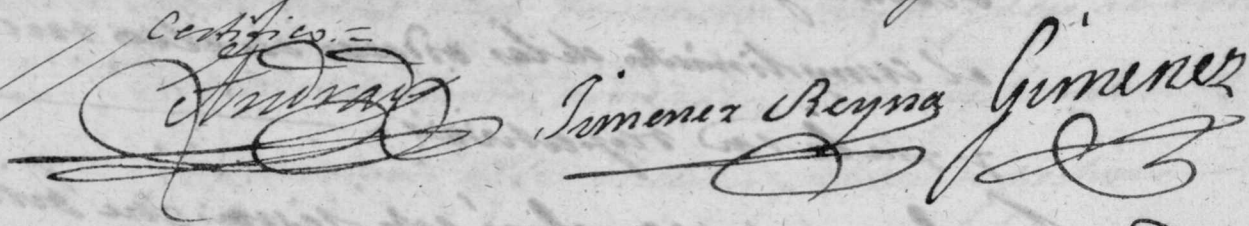 Certifico.=
Andrad Jimenez Reyna Gimenez